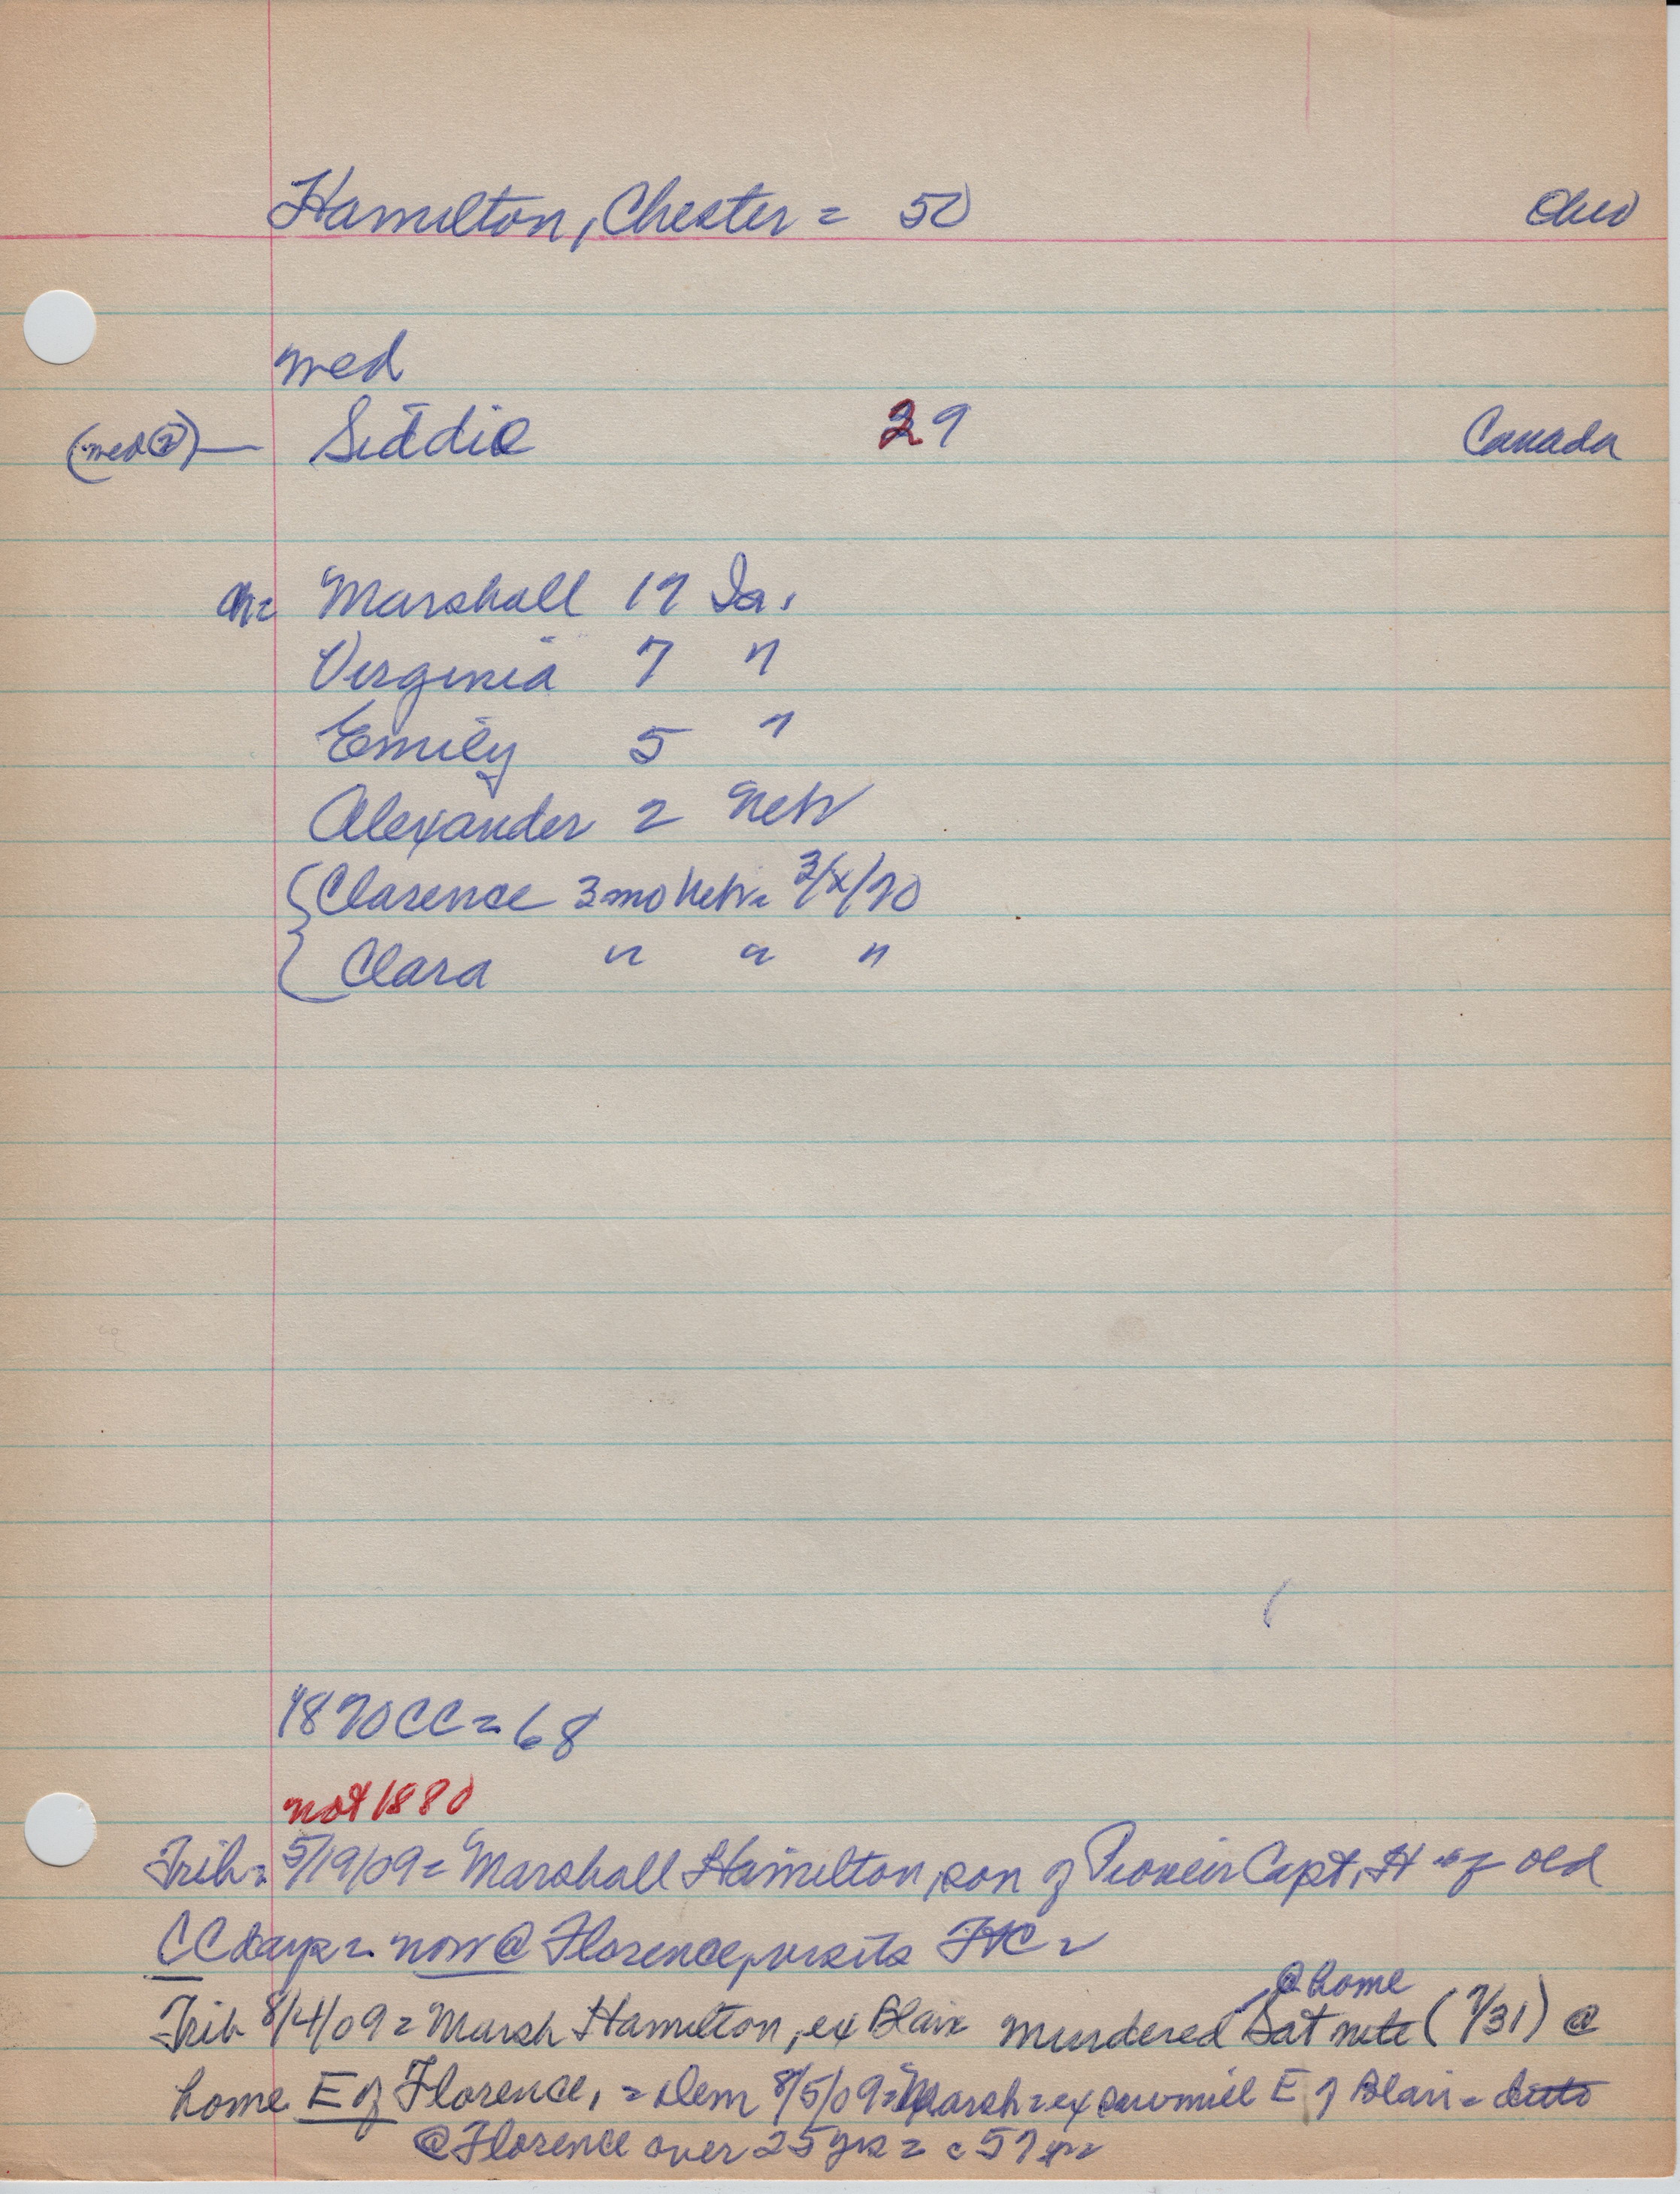 Hamilton, Chester = 50 Ohio
med
(med②)— Siddie 29 Canada
ch= Marshall 17 Ia.
Virginia 7 "
Emily 5 "
Alexander 2 Neb
Clarence 3 mo Neb = 3/x/70
Clara " " "
1870 CC = 68
not 1880
Trib = 5/19/09 = Marshall Hamilton, son of Pioneer Capt. H of old
CC days = now @ Florence, visits =
@ home
Trib 8/4/09 = Marsh Hamilton, ex Blair murdered Sat nite (7/31) @
home E of Florence, = Dem 8/5/09 = Marsh = ex sawmill E of Blair =
@ Florence over 25 yrs = c 57 yrs